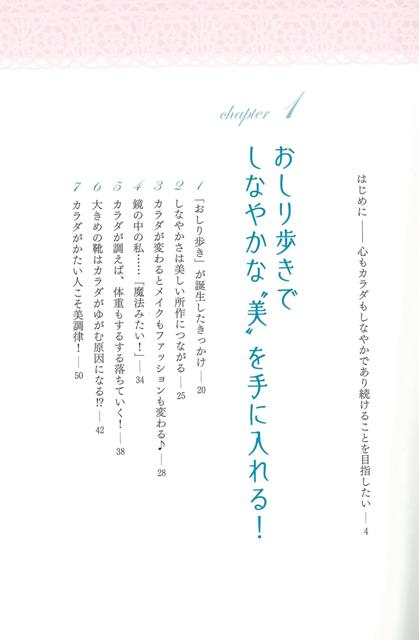 はじめに――心もカラダもしなやかであり続けることを目指したい――4
chapter 1
おしり歩きで
しなやかな〝美〟を手に入れる!
1 「おしり歩き」が誕生したきっかけ――20
2 しなやかさは美しい所作につながる――25
3 カラダが変わるとメイクもファッションも変わる♪――28
4 鏡の中の私……「魔法みたい!」――34
5 カラダが調えば、体重もするする落ちていく!――38
6 大きめの靴はカラダがゆがむ原因になる!?――42
7 カラダがかたい人こそ美調律!――50